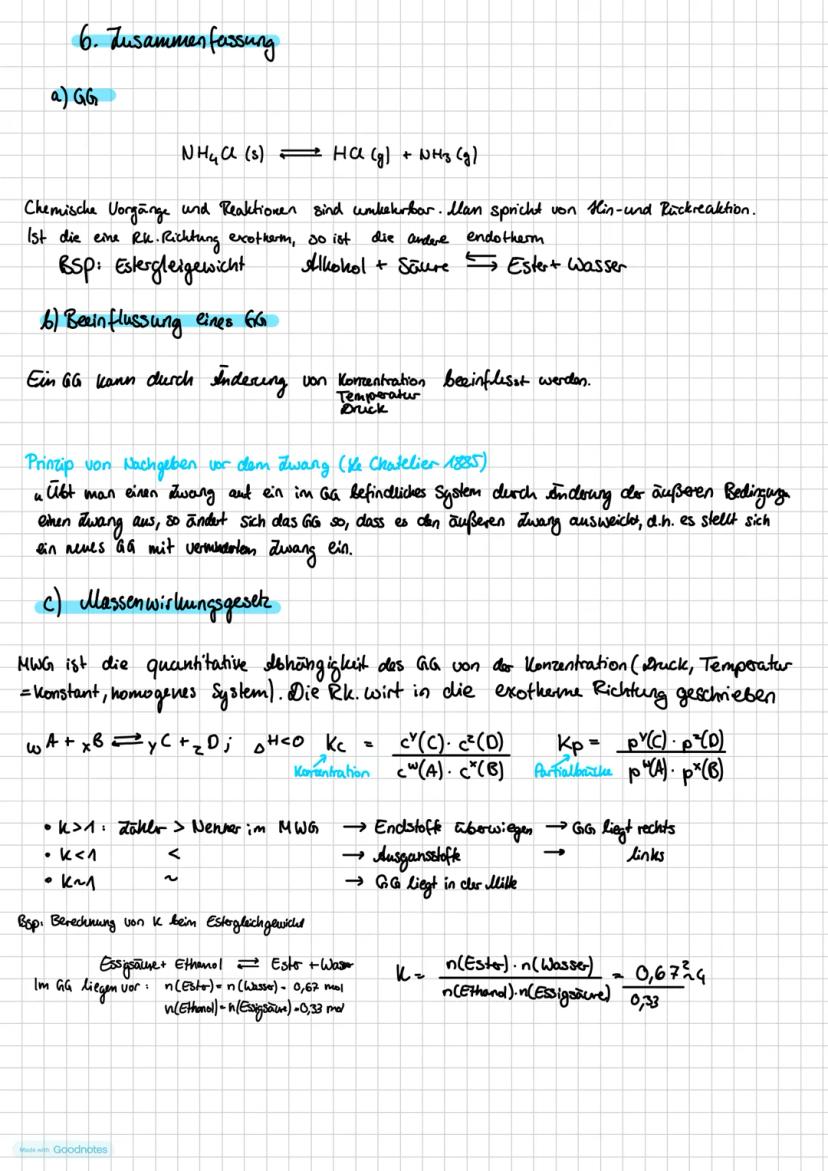 6. Zusammenfassung
a) GG
NH4Cl (s) ⇌ HCl (g) + NH3 (g)
Chemische Vorgänge und Reaktionen sind umkehrbar. Man spricht von Hin- und Rückreaktion.
Ist die eine Rk. Richtung exotherm, so ist die andere endotherm
BSP: Estergleigewicht Alkohol + Säure ⇌ Ester + Wasser
b) Beeinflussung eines GG
Ein GG kann durch Änderung von Konzentration beeinflusst werden.
Temperatur
Druck
Prinzip von Nachgeben vor dem Zwang (Le Chatelier 1885)
„Übt man einen Zwang auf ein im GG befindliches System durch Änderung der äußeren Bedingung
einen Zwang aus, so ändert sich das GG so, dass es den äußeren Zwang ausweicht, d.h. es stellt sich
ein neues GG mit verminderten Zwang ein.
c) Massenwirkungsgesetz
MWG ist die quantitative Abhängigkeit des GG von der Konzentration (Druck, Temperatur
= Konstant, homogenes System). Die Rk. wirt in die exotherme Richtung geschrieben
wA + xB ⇌ yC + zD; ΔH<0 Kc = c^y(C) · c^z(D) / c^w(A) · c^x(B) Kp = p^y(C) · p^z(D) / p^w(A) · p^x(B)
Konzentration Partialdrücke
• K>1: Zähler > Nenner im MWG → Endstoffe überwiegen → GG liegt rechts
• K<1 < → Ausgansstoffe → links
• K~1 ~ → GG liegt in der Mitte
Bsp: Berechnung von K beim Estergleichgewicht
Essigsäure + Ethanol ⇌ Ester + Wasser K = n(Ester) · n(Wasser) / n(Ethanol) · n(Essigsäure) = 0,67² / 0,33 ~ 4
Im GG liegen vor: n(Ester) = n(Wasser) = 0,67 mol
n(Ethanol) = n(Essigsäure) = 0,33 mol
Made with Goodnotes